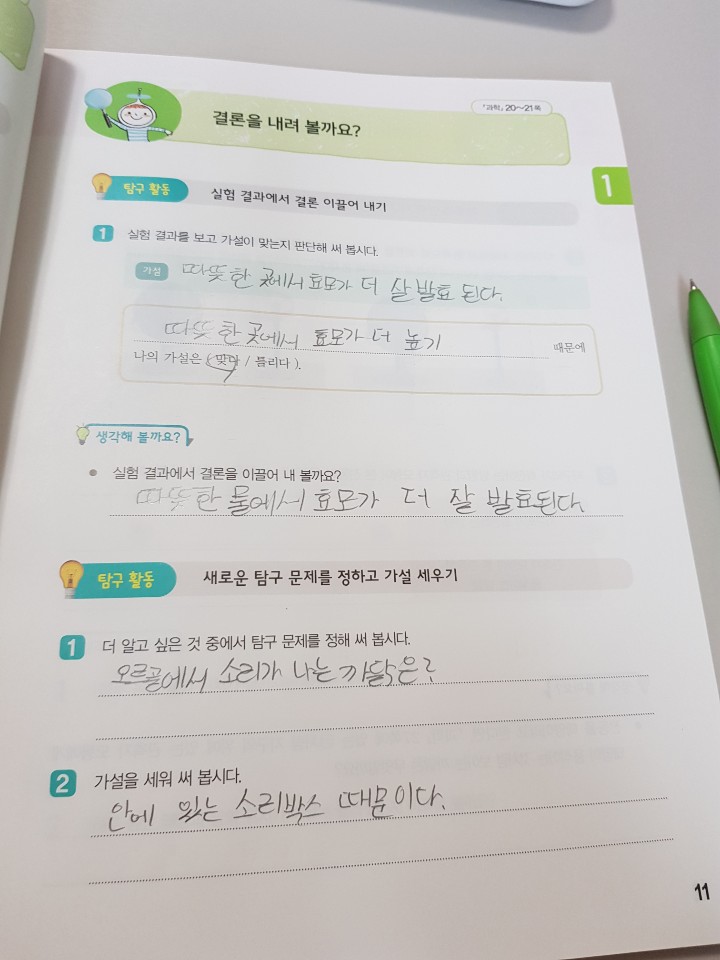 「과학」 20~21쪽
결론을 내려 볼까요?
1
탐구 활동 실험 결과에서 결론 이끌어 내기
1 실험 결과를 보고 가설이 맞는지 판단해 써 봅시다.
가설 따뜻한 곳에서 효모가 더 잘 발효 된다.
따뜻한 곳에서 효모가 더 높기 때문에
나의 가설은 (맞다 / 틀리다).
생각해 볼까요?
실험 결과에서 결론을 이끌어 내 볼까요?
따뜻한 물에서 효모가 더 잘 발효된다.
탐구 활동 새로운 탐구 문제를 정하고 가설 세우기
1 더 알고 싶은 것 중에서 탐구 문제를 정해 써 봅시다.
오르골에서 소리가 나는 까닭은?
2 가설을 세워 써 봅시다.
안에 있는 소리박스 때문이다.
11